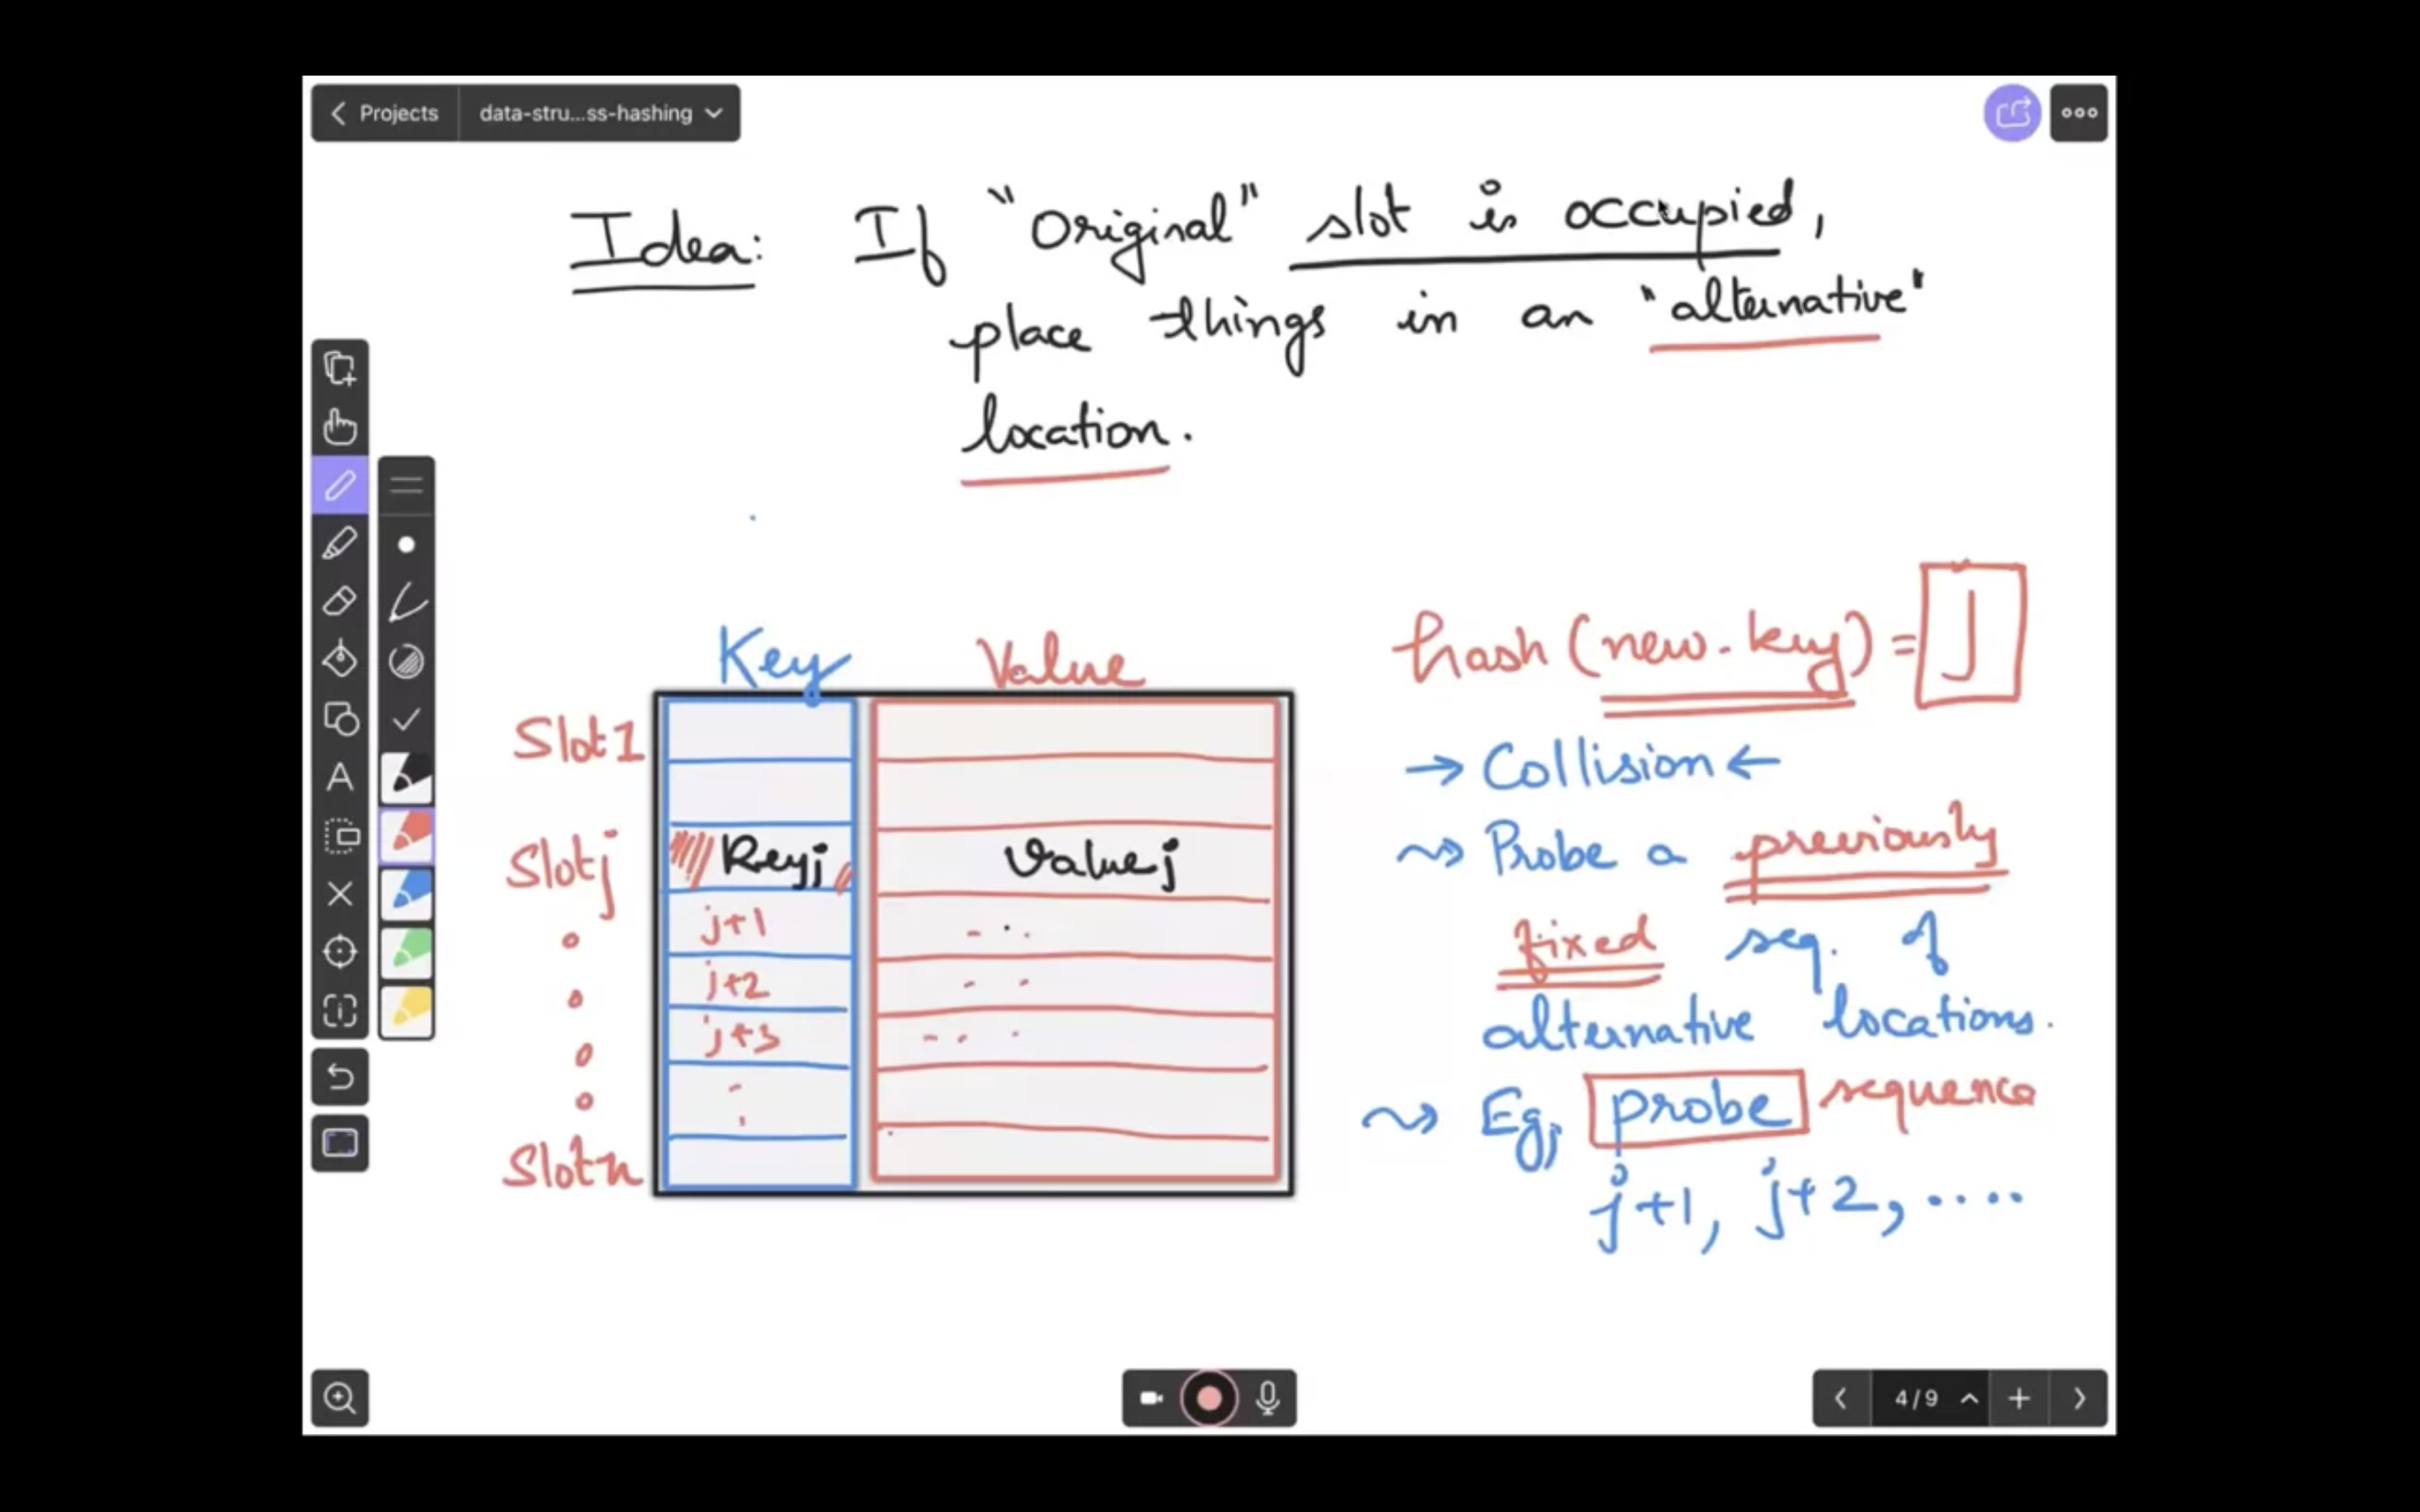 Projects
data-stru...ss-hashing
Idea: If "Original" slot is occupied,
place things in an "alternative"
location.
Key Value
Slot 1
Slot j Key j Value j
j+1
j+2
j+3
Slot n
hash (new.key) = j
→ Collision ←
⇝ Probe a previously
fixed seq. of
alternative locations.
⇝ Eg, probe sequence
j+1, j+2, ....
4/9